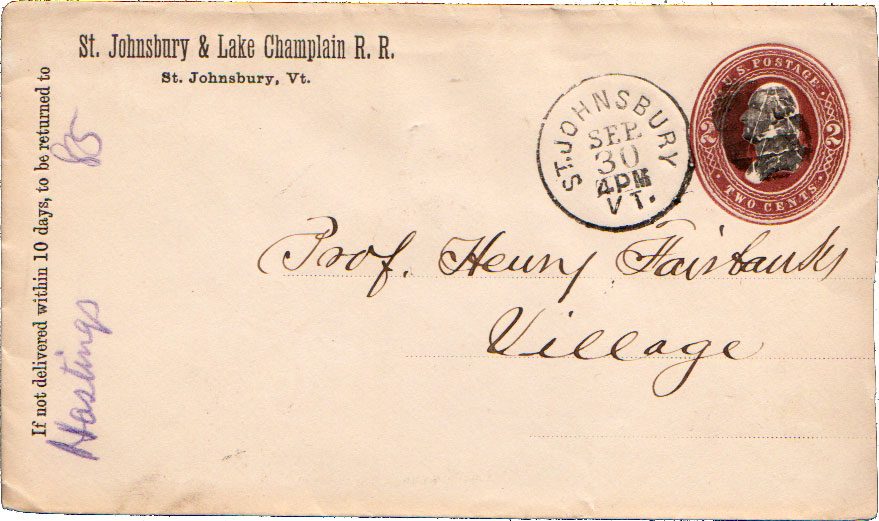 St. Johnsbury & Lake Champlain R. R.
St. Johnsbury, Vt.
If not delivered within 10 days, to be returned to
Hastings 85
ST. JOHNSBURY
SEP
30
4PM
VT.
U.S. POSTAGE
2 2
TWO CENTS
Prof. Henry Fairbanks
Village